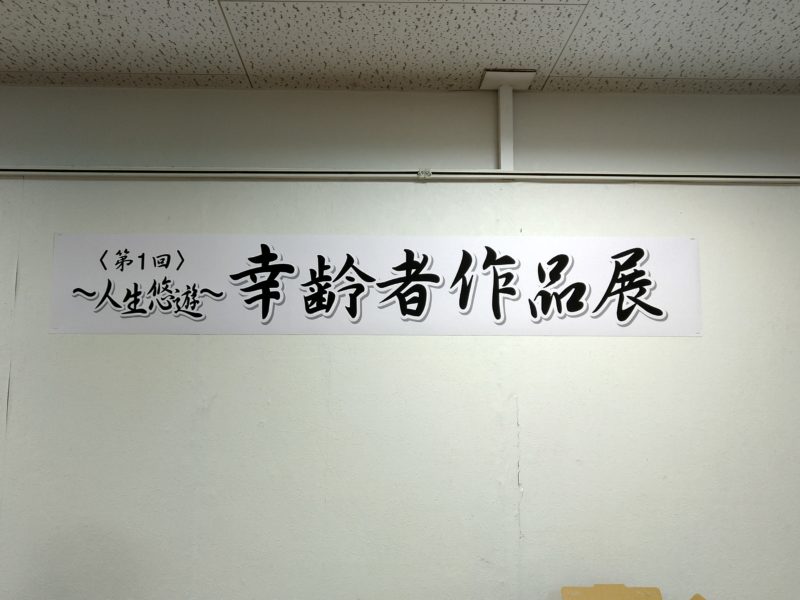 〈第1回〉
～人生悠遊～
幸齢者作品展